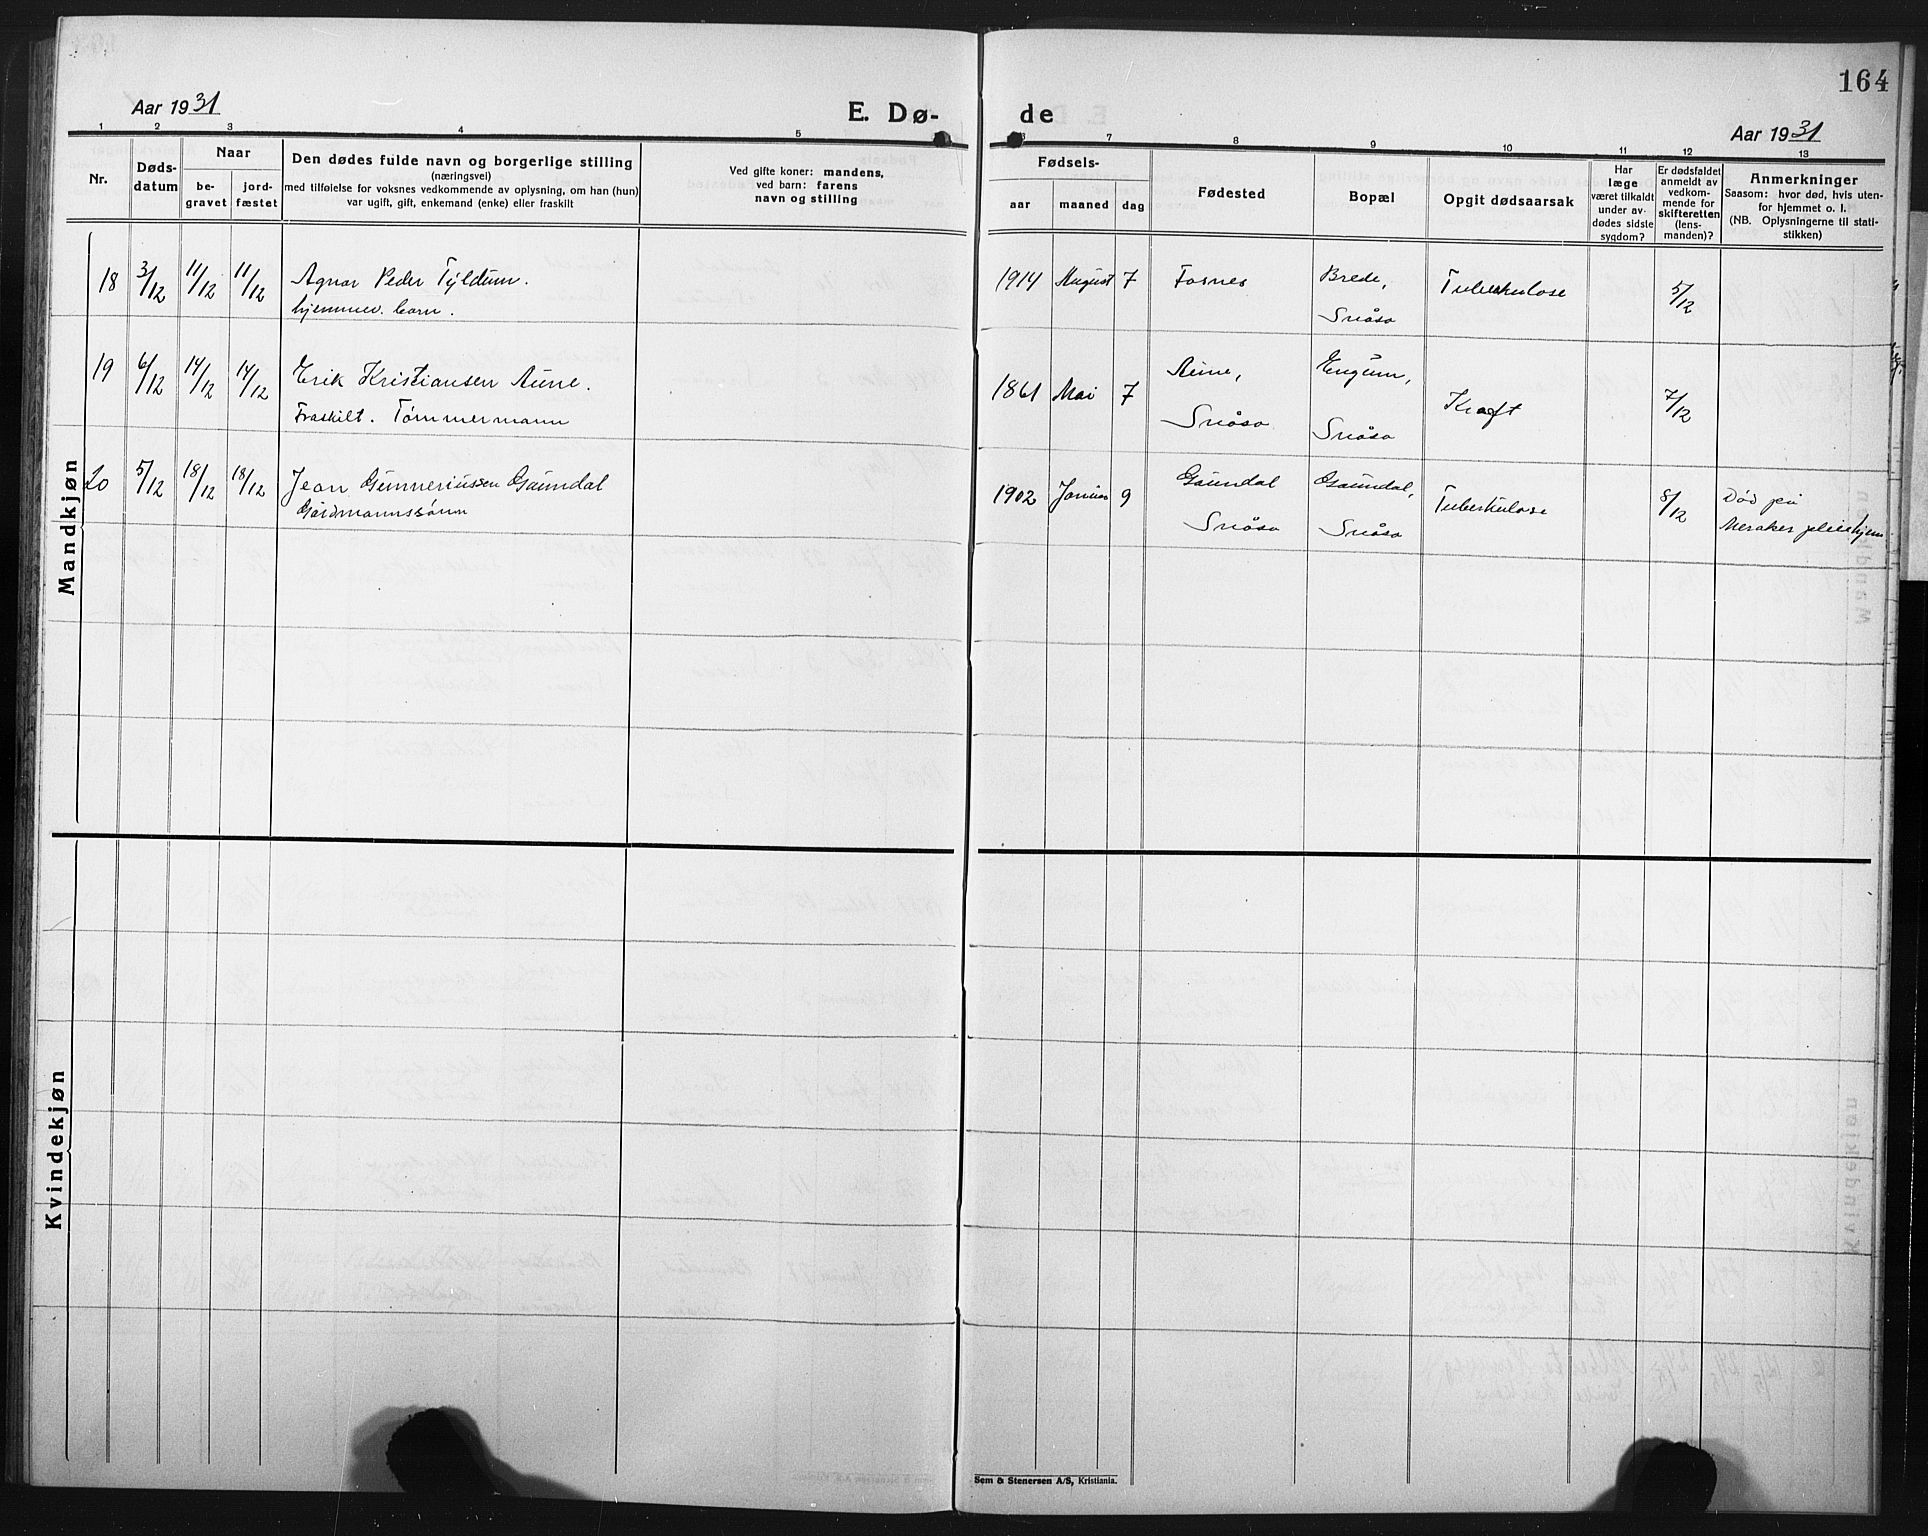 164
Aar 1931
E. Dø-
de
Aar 1931
1 2 3 4 5 6 7 8 9 10 11 12 13
Nr.
Døds-
datum
Naar
be-
gravet
jord-
fæstet
Den dødes fulde navn og borgerlige stilling
(næringsvei)
med tilføielse for voksnes vedkommende av oplysning, om han (hun)
var ugift, gift, enkemand (enke) eller fraskilt
Ved gifte koner: mandens,
ved barn: farens
navn og stilling
Fødsels-
aar
maaned
dag
Fødested
Bopæl
Opgit dødsaarsak
Har
læge
været tilkaldt
under av-
dødes sidste
sygdom?
Er dødsfaldet
anmeldt av
vedkom-
mende for
skifteretten
(lens-
manden)?
Anmerkninger
Saasom: hvor død, hvis uten-
for hjemmet o. l.
(NB. Oplysningerne til stati-
stikken)
Mandkjøn
18 3/12 11/12 11/12 Agnar Peder Tyldum. 1914 August 7 Fosnes Brede, Tuberkulose 5/12
hjemmev. barn. Snåsa
19 6/12 14/12 14/12 Erik Kristiansen Aune. 1861 Mai 7 Aune, Engum, Kræft 7/12
Fraskilt. Tømmermann Snåsa Snåsa
20 5/12 18/12 18/12 Jean Gunneriussen Gaundal 1902 Januar 9 Gaundal Gaundal, Tuberkulose 8/12 Død på
Gårdmannssønn Snåsa Snåsa Meraker pleiehjem
Kvindekjøn
Sem & Stenersen A/S, Kristiania.